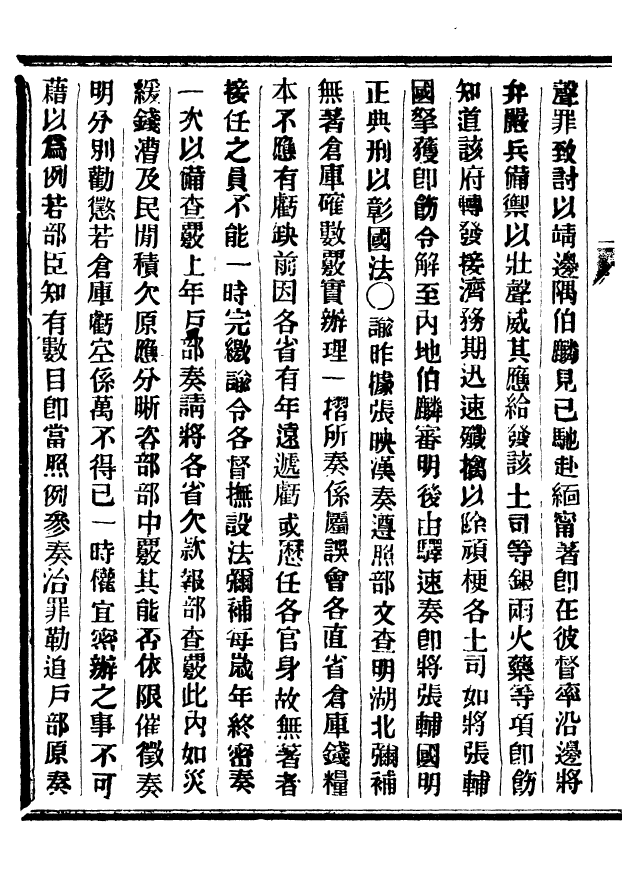 聲罪致討以靖邊隅伯麟見已馳赴緬甯著卽在彼督率沿邊將
弁嚴兵備禦以壯聲威其應給發該土司等銀兩火藥等項卽飭
知道該府轉發接濟務期迅速殲擒以除頑梗各土司如將張輔
國拏獲卽飭令解至內地伯麟審明後由驛速奏卽將張輔國明
正典刑以彰國法○諭昨據張映漢奏遵照部文查明湖北彌補
無著倉庫確數覈實辦理一摺所奏係屬誤會各直省倉庫錢糧
本不應有虧缺前因各省有年遠遞虧或歷任各官身故無著者
接任之員不能一時完繳諭令各督撫設法彌補每歲年終密奏
一次以備查覈上年戶部奏請將各省欠款報部查覈此內如災
緩錢漕及民閒積欠原應分晰咨部部中覈其能否依限催徵奏
明分別勸懲若倉庫虧空係萬不得已一時權宜密辦之事不可
藉以爲例若部臣知有數目卽當照例參奏治罪勒追戶部原奏